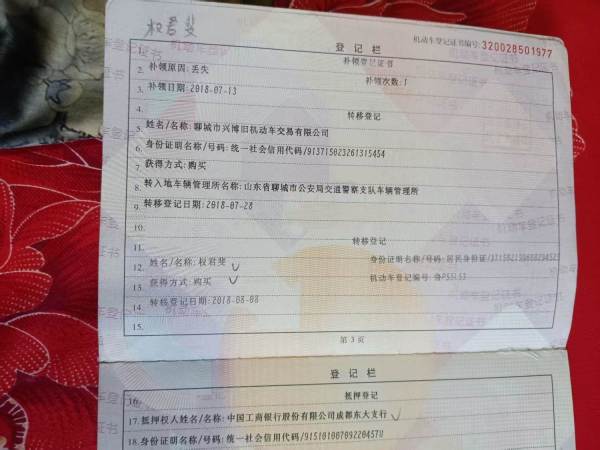 权君斐
机动车登记证书编号:320028501977
登记栏
1. 补领登记证书
2. 补领原因:丢失 补领次数:1
3. 补领日期:2018-07-13
4. 转移登记
5. 姓名/名称:聊城市兴博旧机动车交易有限公司
6. 身份证明名称/号码:统一社会信用代码/913715023261315454
7. 获得方式:购买
8. 转入地车辆管理所名称:山东省聊城市公安局交通警察支队车辆管理所
9. 转移登记日期:2018-07-28
10.
11. 转移登记
12. 姓名/名称:权君斐 身份证明名称/号码:居民身份证/
13. 获得方式:购买 机动车登记编号:鲁P55L53
14. 转移登记日期:2018-08-08
15.
第 3 页
登记栏
16. 抵押登记
17. 抵押权人姓名/名称:中国工商银行股份有限公司成都东大支行
18. 身份证明名称/号码:统一社会信用代码/91510100709220457U